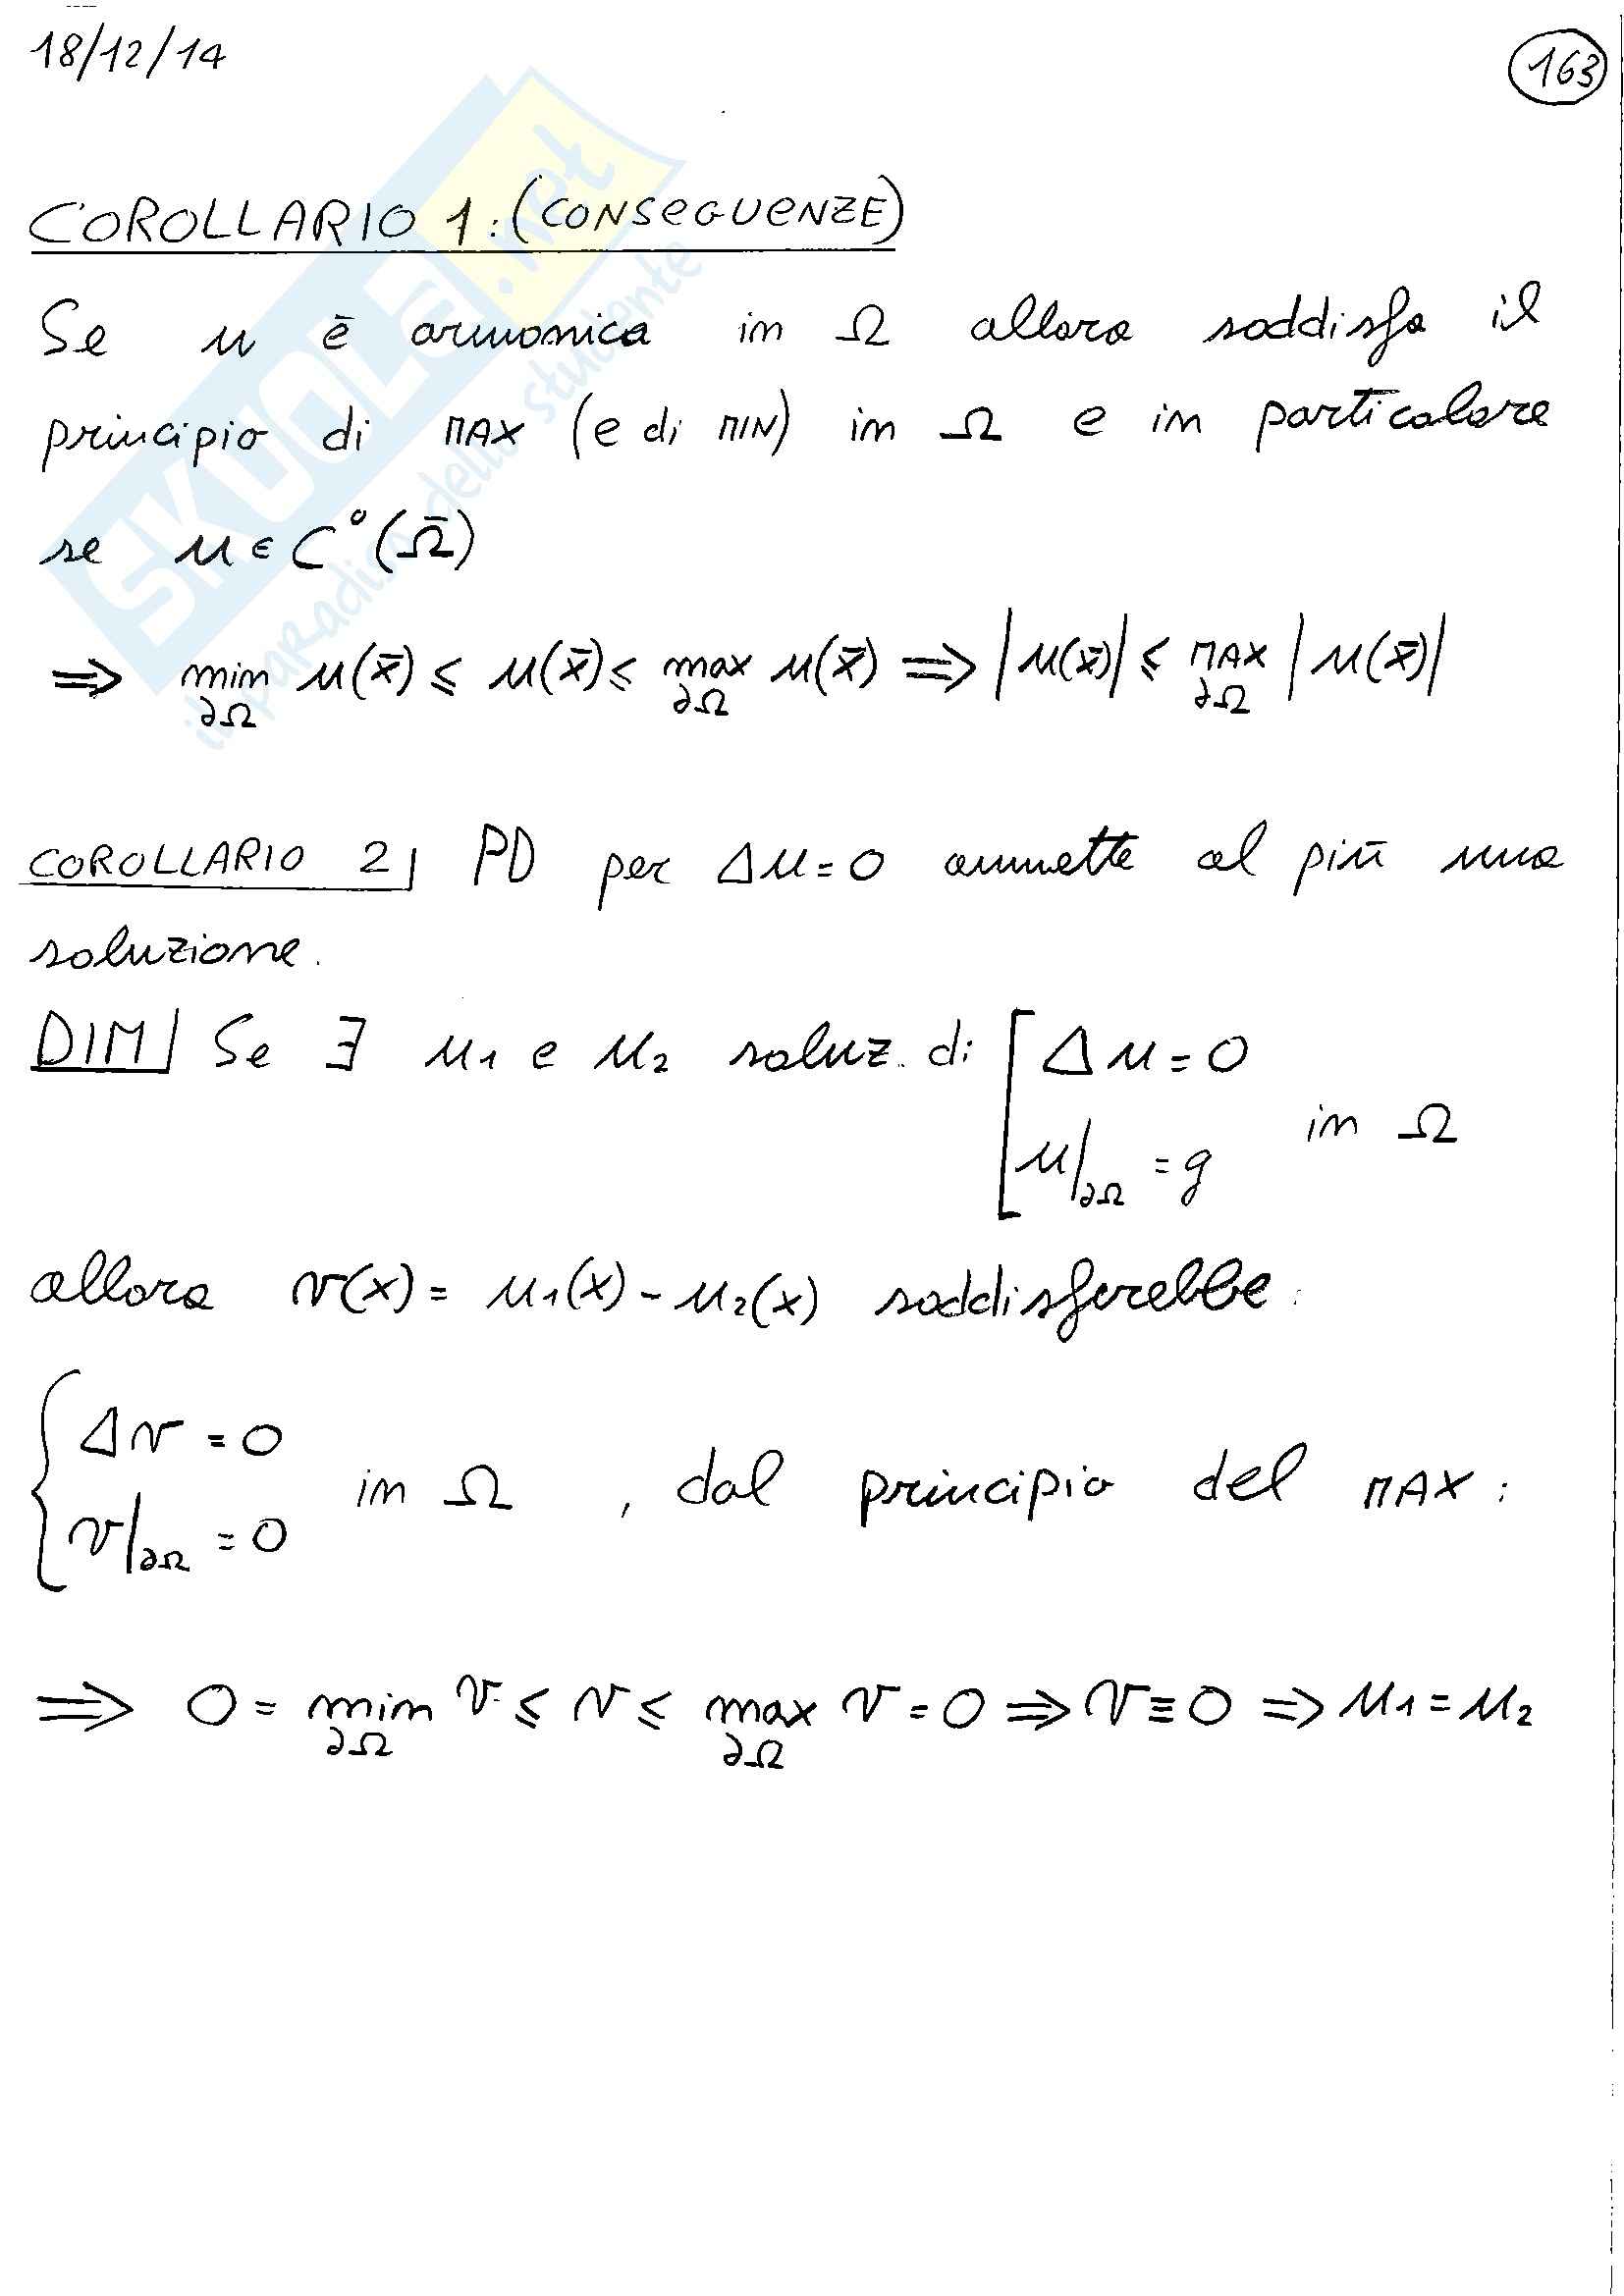 18/12/14
163
COROLLARIO 1: (CONSEGUENZE)
Se u è armonica in Ω allora soddisfa il
principio di MAX (e di MIN) in Ω e in particolare
se u ∈ C°(Ω̄)
⇒ min u(x̄) ≤ u(x̄) ≤ max u(x̄) ⇒ |u(x̄)| ≤ MAX |u(x̄)|
∂Ω ∂Ω ∂Ω
COROLLARIO 2| PD per Δu = 0 ammette al più una
soluzione.
DIM| Se ∃ u₁ e u₂ soluz. di [ Δu = 0
u|∂Ω = g in Ω
allora v(x) = u₁(x) - u₂(x) soddisferebbe:
{ Δv = 0
v|∂Ω = 0 in Ω , dal principio del MAX:
⇒ 0 = min v ≤ v ≤ max v = 0 ⇒ v ≡ 0 ⇒ u₁ = u₂
∂Ω ∂Ω
SKUOLA.net
il paradiso dello studente